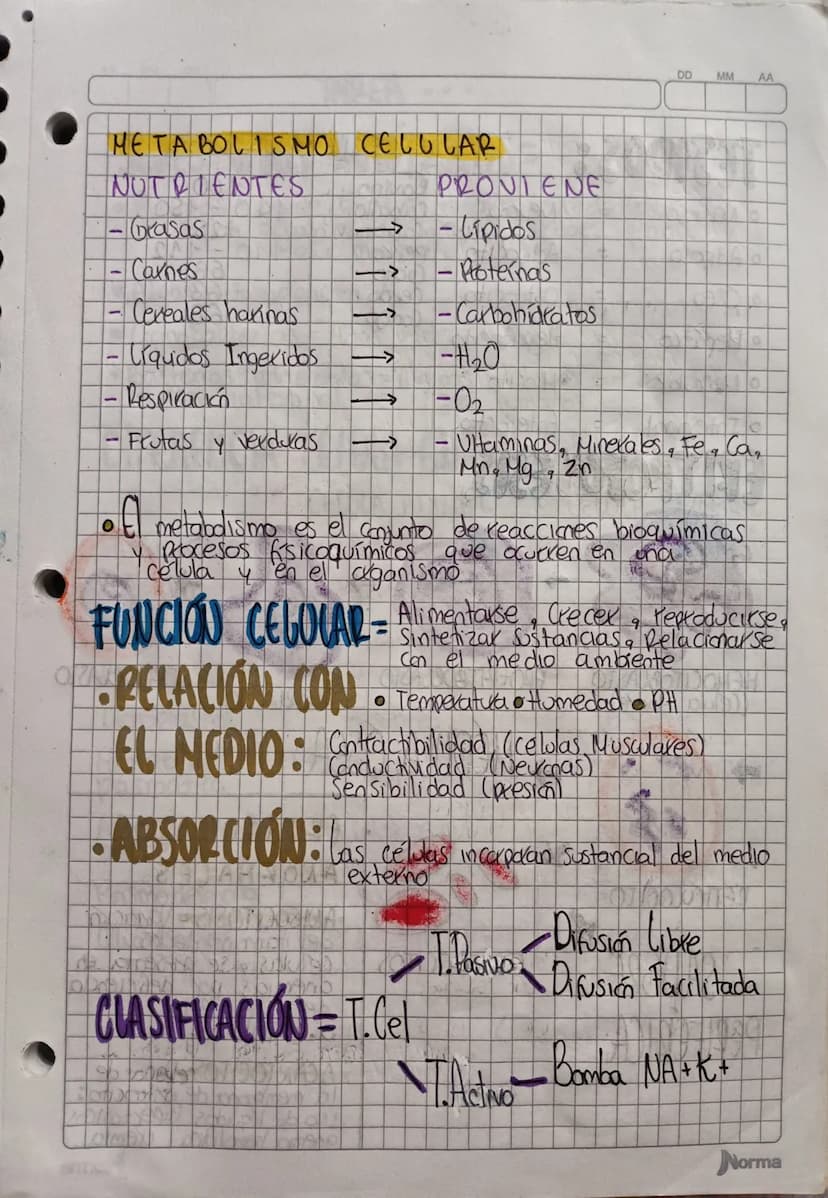 DD MM AA
METABOLISMO CELULAR
NUTRIENTES PROVIENE
- Grasas → - Lípidos
- Carnes → - Proteínas
- Cereales harinas → - Carbohidratos
- Líquidos Ingeridos → - H₂O
- Respiración → - O₂
- Frutas y verduras → - Vitaminas, Minerales, Fe, Ca,
Mn, Mg, Zn
• El metabolismo es el conjunto de reacciones bioquímicas
y procesos fisicoquímicos que ocurren en una
célula y en el organismo
FUNCIÓN CELULAR = Alimentarse, Crecer, reproducirse,
Sintetizar Sustancias, Relacionarse
con el medio ambiente
• RELACIÓN CON • Temperatura • Humedad • PH
EL MEDIO: Contractibilidad (Celulas Musculares)
Conductividad (Neuronas)
Sensibilidad (presión)
• ABSORCIÓN: Las células incorporan sustancial del medio
externo
T.Pasivo: Difusión Libre
Difusión Facilitada
CLASIFICACIÓN = T.Cel
T.Activo - Bomba NA+K+
Norma